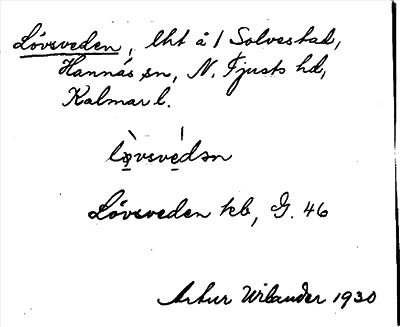 Lövsveden, lht å 1 Solvestad,
Hannäs sn, N. Tjusts hd,
Kalmar l.
lœ̀vsve̱dən
Lövsveden kb, G. 46
Artur Wilander 1930